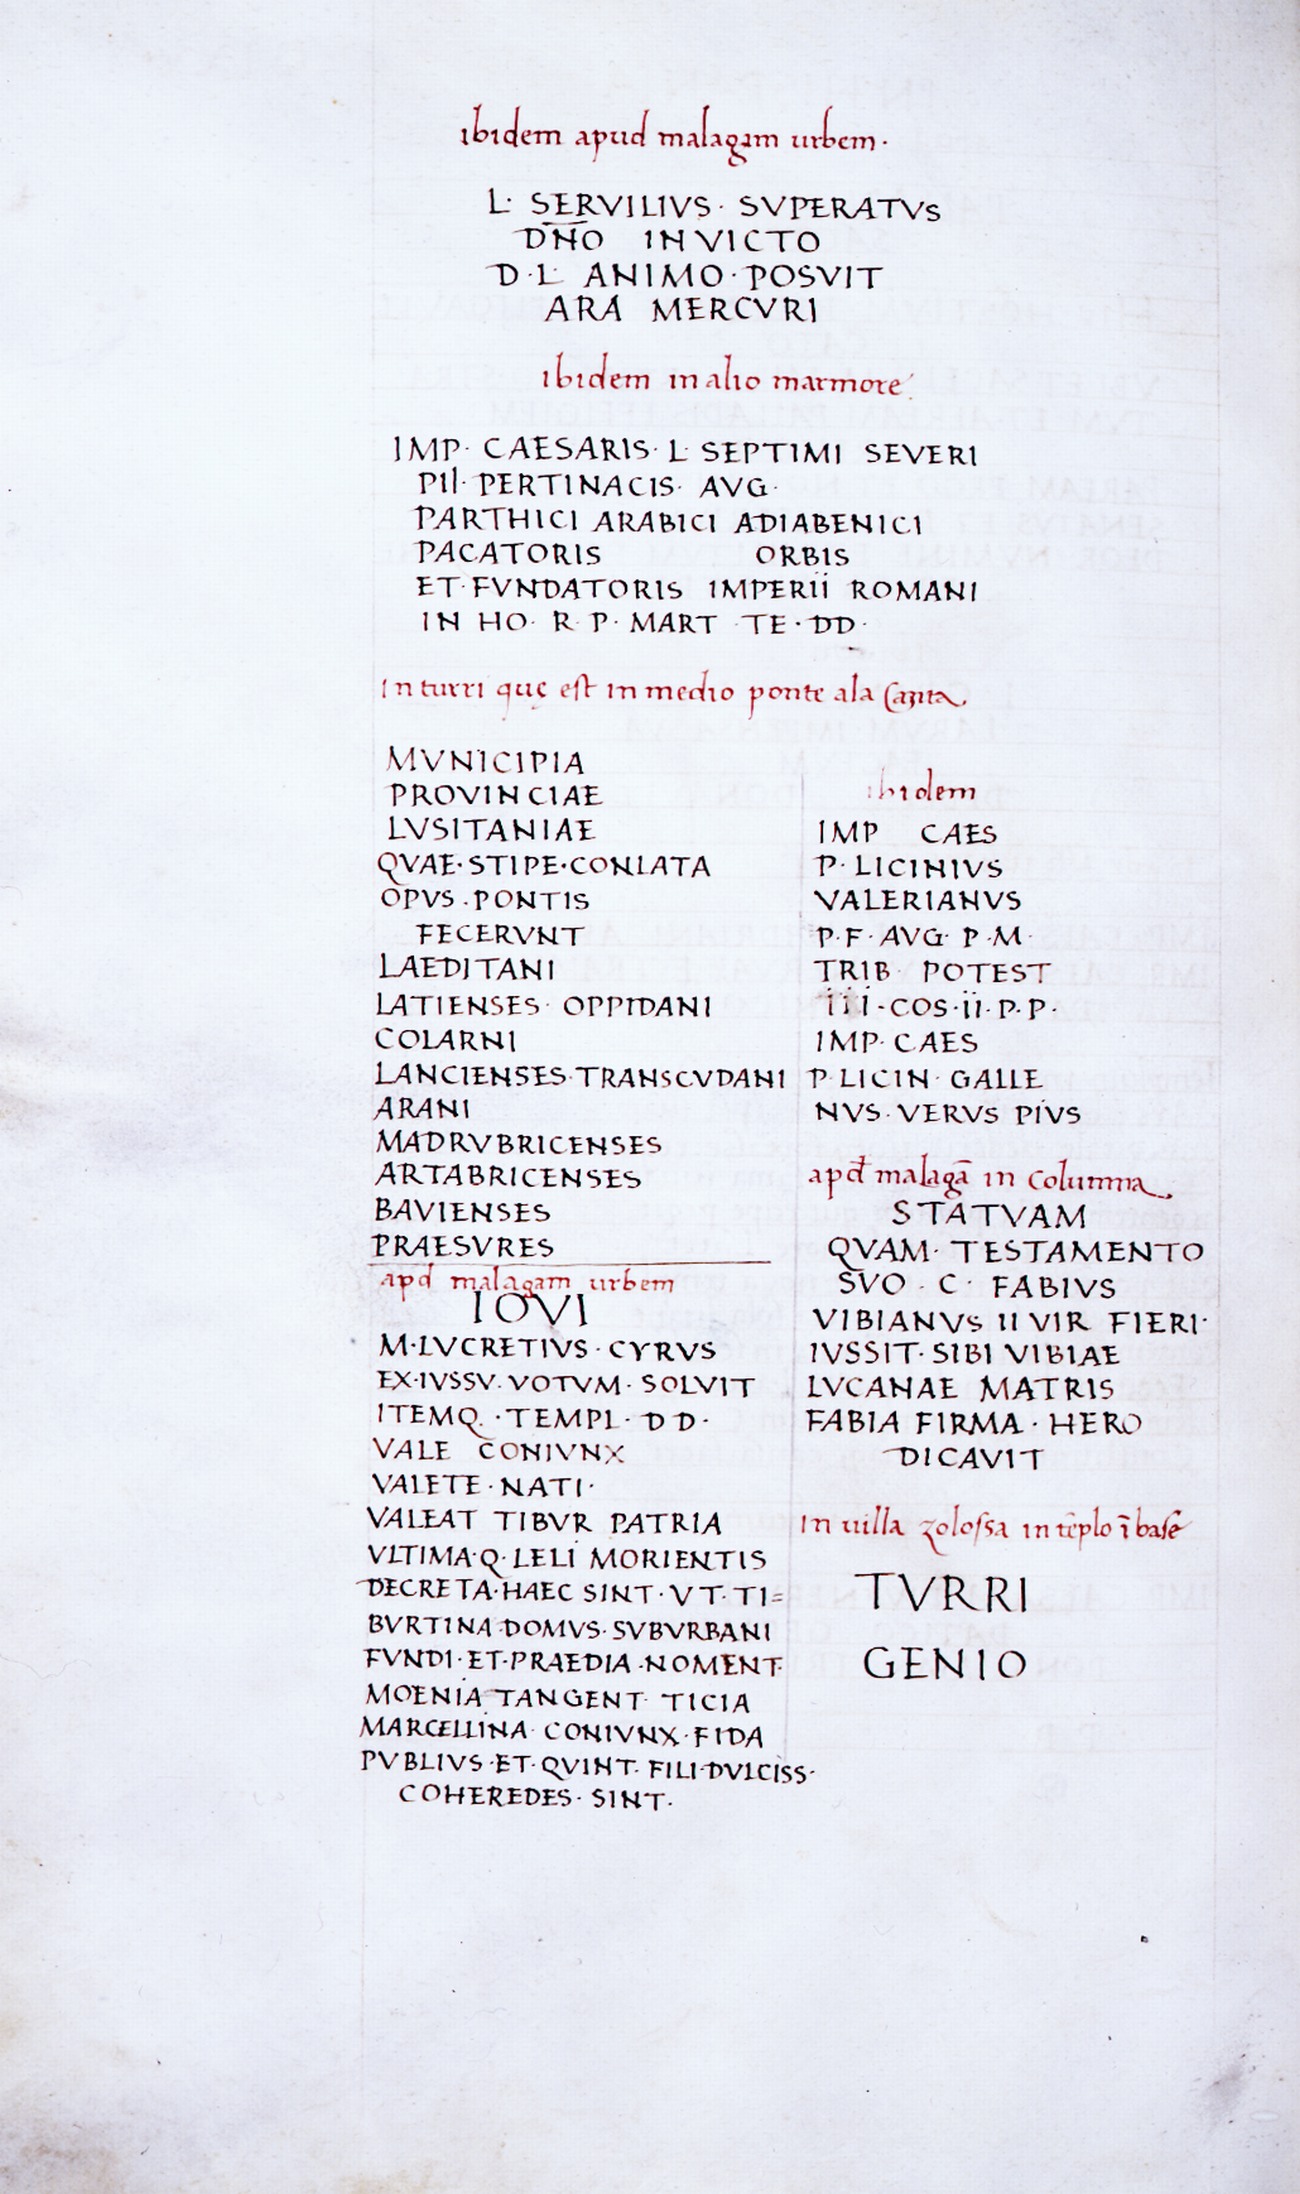 ibidem apud malagam urbem·
L· SERVILIVS· SVPERATVS
DN̄O INVICTO
D·L· ANIMO·POSVIT
ARA MERCVRI
ibidem in alio marmore.
IMP· CAESARIS· L· SEPTIMI SEVERI
PII· PERTINACIS· AVG·
PARTHICI ARABICI ADIABENICI
PACATORIS ORBIS
ET·FVNDATORIS IMPERII ROMANI
IN HO· R· P· MART TE·DD·
In turri quę est in medio ponte ala
MVNICIPIA
PROVINCIAE
LVSITANIAE
QVAE·STIPE·CONLATA
OPVS·PONTIS
FECERVNT
LAEDITANI
LATIENSES· OPPIDANI
COLARNI
LANCIENSES·TRANSCVDANI
ARANI
MADRVBRICENSES
ARTABRICENSES
BAVIENSES
PRAESVRES
apd malagam urbem
IOVI
M·LVCRETIVS·CYRVS
EX·IVSSV·VOTVM·SOLVIT
ITEMQ·TEMPL·DD·
VALE CONIVNX
VALETE·NATI·
VALEAT TIBVR PATRIA
VLTIMA·Q·LELI MORIENTIS
DECRETA·HAEC SINT·VT·TI=
BVRTINA·DOMVS·SVBVRBANI
FVNDI·ET·PRAEDIA·NOMENT·
MOENIA TANGENT· TICIA
MARCELLINA· CONIVNX·FIDA
PVBLIVS·ET·QVINT· FILI·DVLCISS·
COHEREDES· SINT·
ibidem
IMP CAES
P·LICINIVS
VALERIANVS
P·F·AVG·P·M·
TRIB· POTEST
iii·COS·ii·P·P·
IMP· CAES
P·LICIN· GALLE
NVS·VERVS PIVS
apd̄ malagā in columna
STATVAM
QVAM· TESTAMENTO
SVO· C· FABIVS
VIBIANVS II VIR FIERI·
IVSSIT·SIBI VIBIAE
LVCANAE MATRIS
FABIA FIRMA·HERO
DICAVIT
in uilla zolossa in tēplo ī base
TVRRI
GENIO